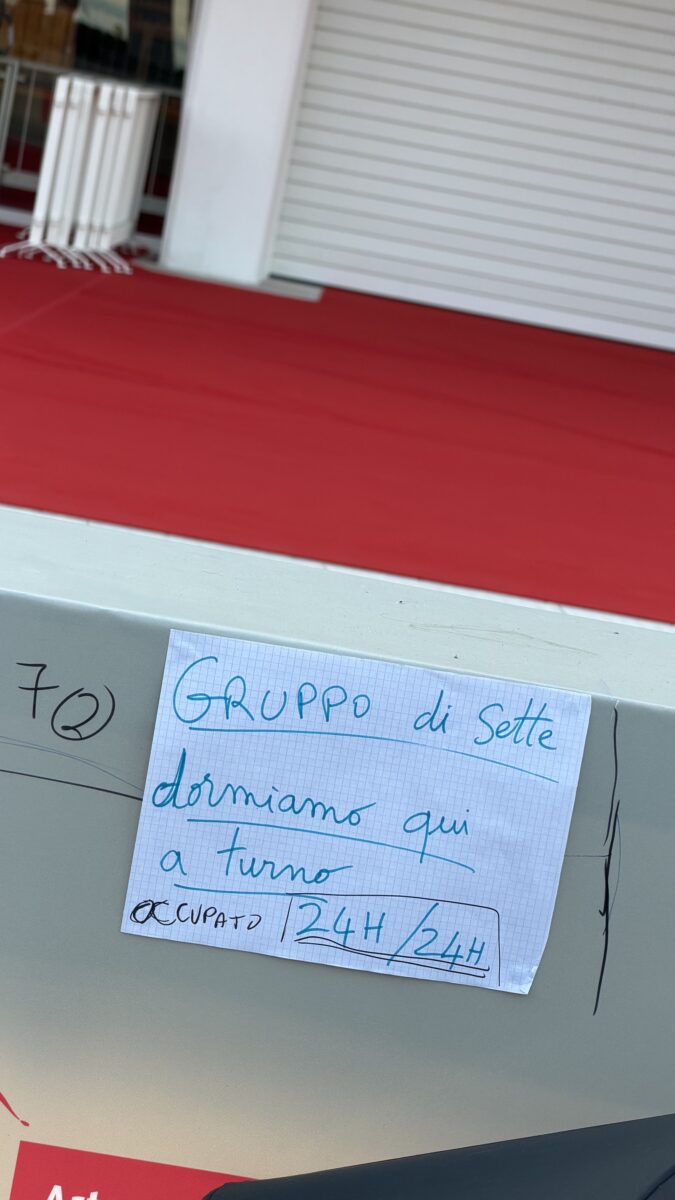 7(2)
GRUPPO di sette
dormiamo qui
a turno
OCCUPATO 24H/24H